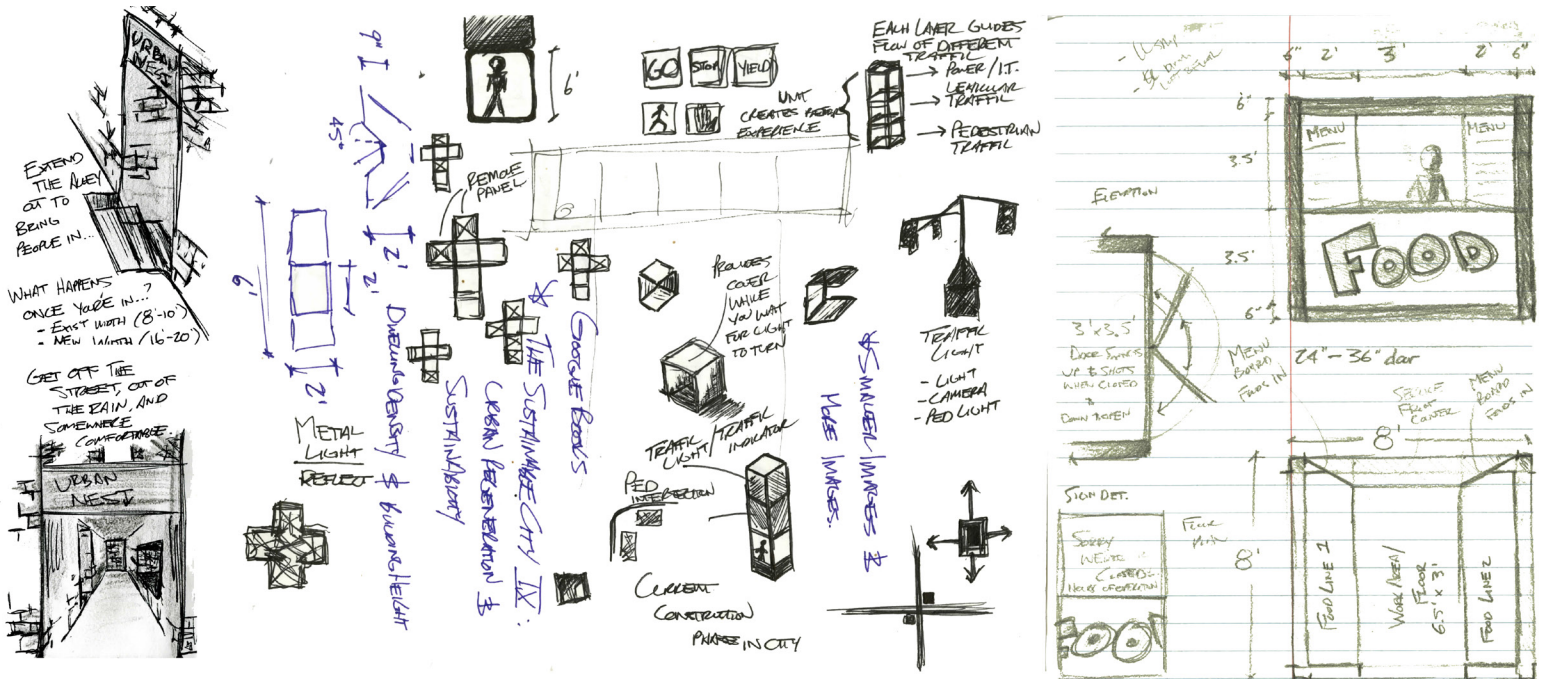 URBAN
NEST
EXTEND
THE ALLEY
OUT TO
BRING
PEOPLE IN...
WHAT HAPPENS
ONCE YOU'RE IN...?
- EXIST WIDTH (8'-10')
- NEW WIDTH (16-20')
GET OFF THE
STREET, OUT OF
THE RAIN, AND
SOMEWHERE
COMFORTABLE.
URBAN
NEST
9"
45°
2'
2'
6'
2'
METAL
LIGHT
REFLECT
DWELLING DENSITY & BUILDING HEIGHT
SUSTAINABILITY
URBAN REGENERATION &
* THE SUSTAINABLE CITY IV:
GOOGLE BOOKS
REMOVE
PANEL
6'
GO
STOP
YIELD
UNIT
CREATES
EXPERIENCE
EACH LAYER GUIDES
FLOW OF DIFFERENT
TRAFFIC
→ POWER/I.T.
→ VEHICULAR
TRAFFIC
→ PEDESTRIAN
TRAFFIC
PROVIDES
COVER
WHILE
YOU WAIT
FOR LIGHT
TO TURN
TRAFFIC
LIGHT/TRAFFIC
INDICATOR
PED
INTERSECTION
CURRENT
CONSTRUCTION
PHASE IN CITY
* SMALLER IMAGES &
MORE IMAGES.
TRAFFIC
LIGHT
- LIGHT
- CAMERA
- PED LIGHT
6" 2' 3' 2' 6"
6"
3.5'
3.5'
6"
MENU
MENU
FOOD
ELEVATION
3'x3.5'
DOOR SWINGS
UP & SHUTS
WHEN CLOSED
&
DOWN OPEN
MENU
BOARD
FOLDS IN
24"-36" door
MENU
BOARD
FOLDS IN
8'
8'
SIGN DET.
SORRY
WE'RE
CLOSED:
HOURS OF OPERATION
FOOD
FLOOR
PLAN
FOOD LINE 1
WORK AREA/
FLOOR
6.5' x 3'
FOOD LINE 2